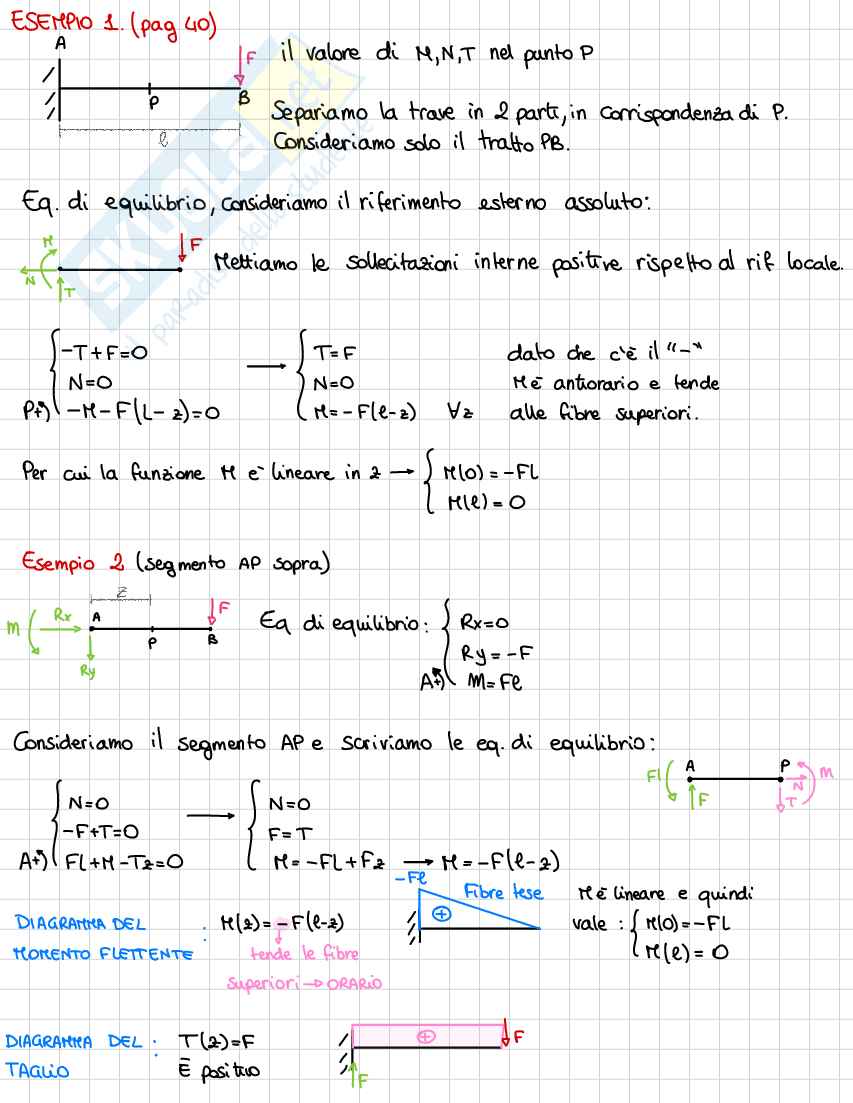 ESEMPIO 1. (pag 40)
A
F
P
B
l
il valore di M,N,T nel punto P
Separiamo la trave in 2 parti, in corrispondenza di P.
Consideriamo solo il tratto PB.
SKUOLA.net
Eq. di equilibrio, consideriamo il riferimento esterno assoluto:
M
N
T
F
Mettiamo le sollecitazioni interne positive rispetto al rif locale.
-T+F=0
N=0
P+) -M-F(L-z)=0
T=F
N=0
M=-F(l-z) ∀z
dato che c'è il "-"
M è antiorario e tende
alle fibre superiori.
Per cui la funzione M e' lineare in z → M(0)=-Fl
M(l)=0
Esempio 2 (segmento AP sopra)
z
m
Rx
A
Ry
P
B
F
Eq di equilibrio: Rx=0
Ry=-F
A+) m=Fl
Consideriamo il segmento AP e scriviamo le eq. di equilibrio:
Fl
A
F
P
N
T
M
N=0
-F+T=0
A+) Fl+M-Tz=0
N=0
F=T
M=-FL+Fz → M=-F(l-z)
DIAGRAMMA DEL
MOMENTO FLETTENTE :
M(z)=-F(l-z)
tende le fibre
superiori → ORARIO
-Fl
Fibre tese
+
M è lineare e quindi
vale : M(0)=-FL
M(l)=0
DIAGRAMMA DEL :
TAGLIO
T(z)=F
È positivo
+
F
F